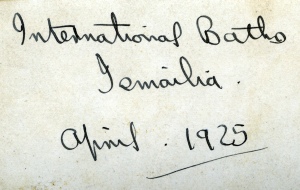 International Baths
Ismailia.
April. 1925